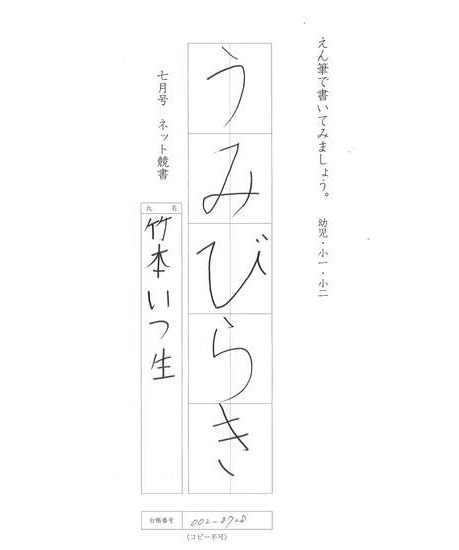 えん筆で書いてみましょう。 幼児・小一・小二
うみびらき
七月号 ネット競書
氏名
竹本いつ生
台帳番号 002-8728
(コピー不可)